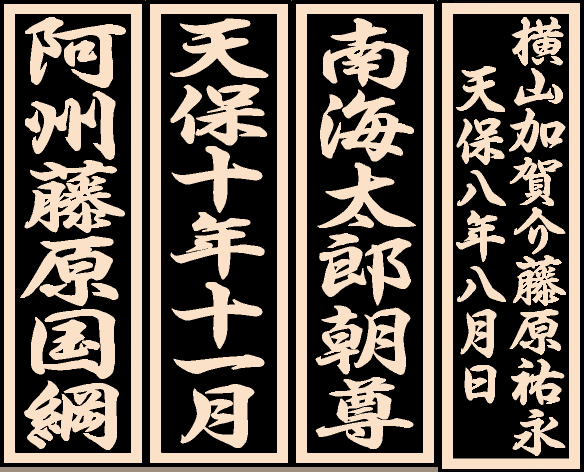 横山加賀介藤原祐永
天保八年八月日
南海太郎朝尊
天保十年十一月
阿州藤原国綱